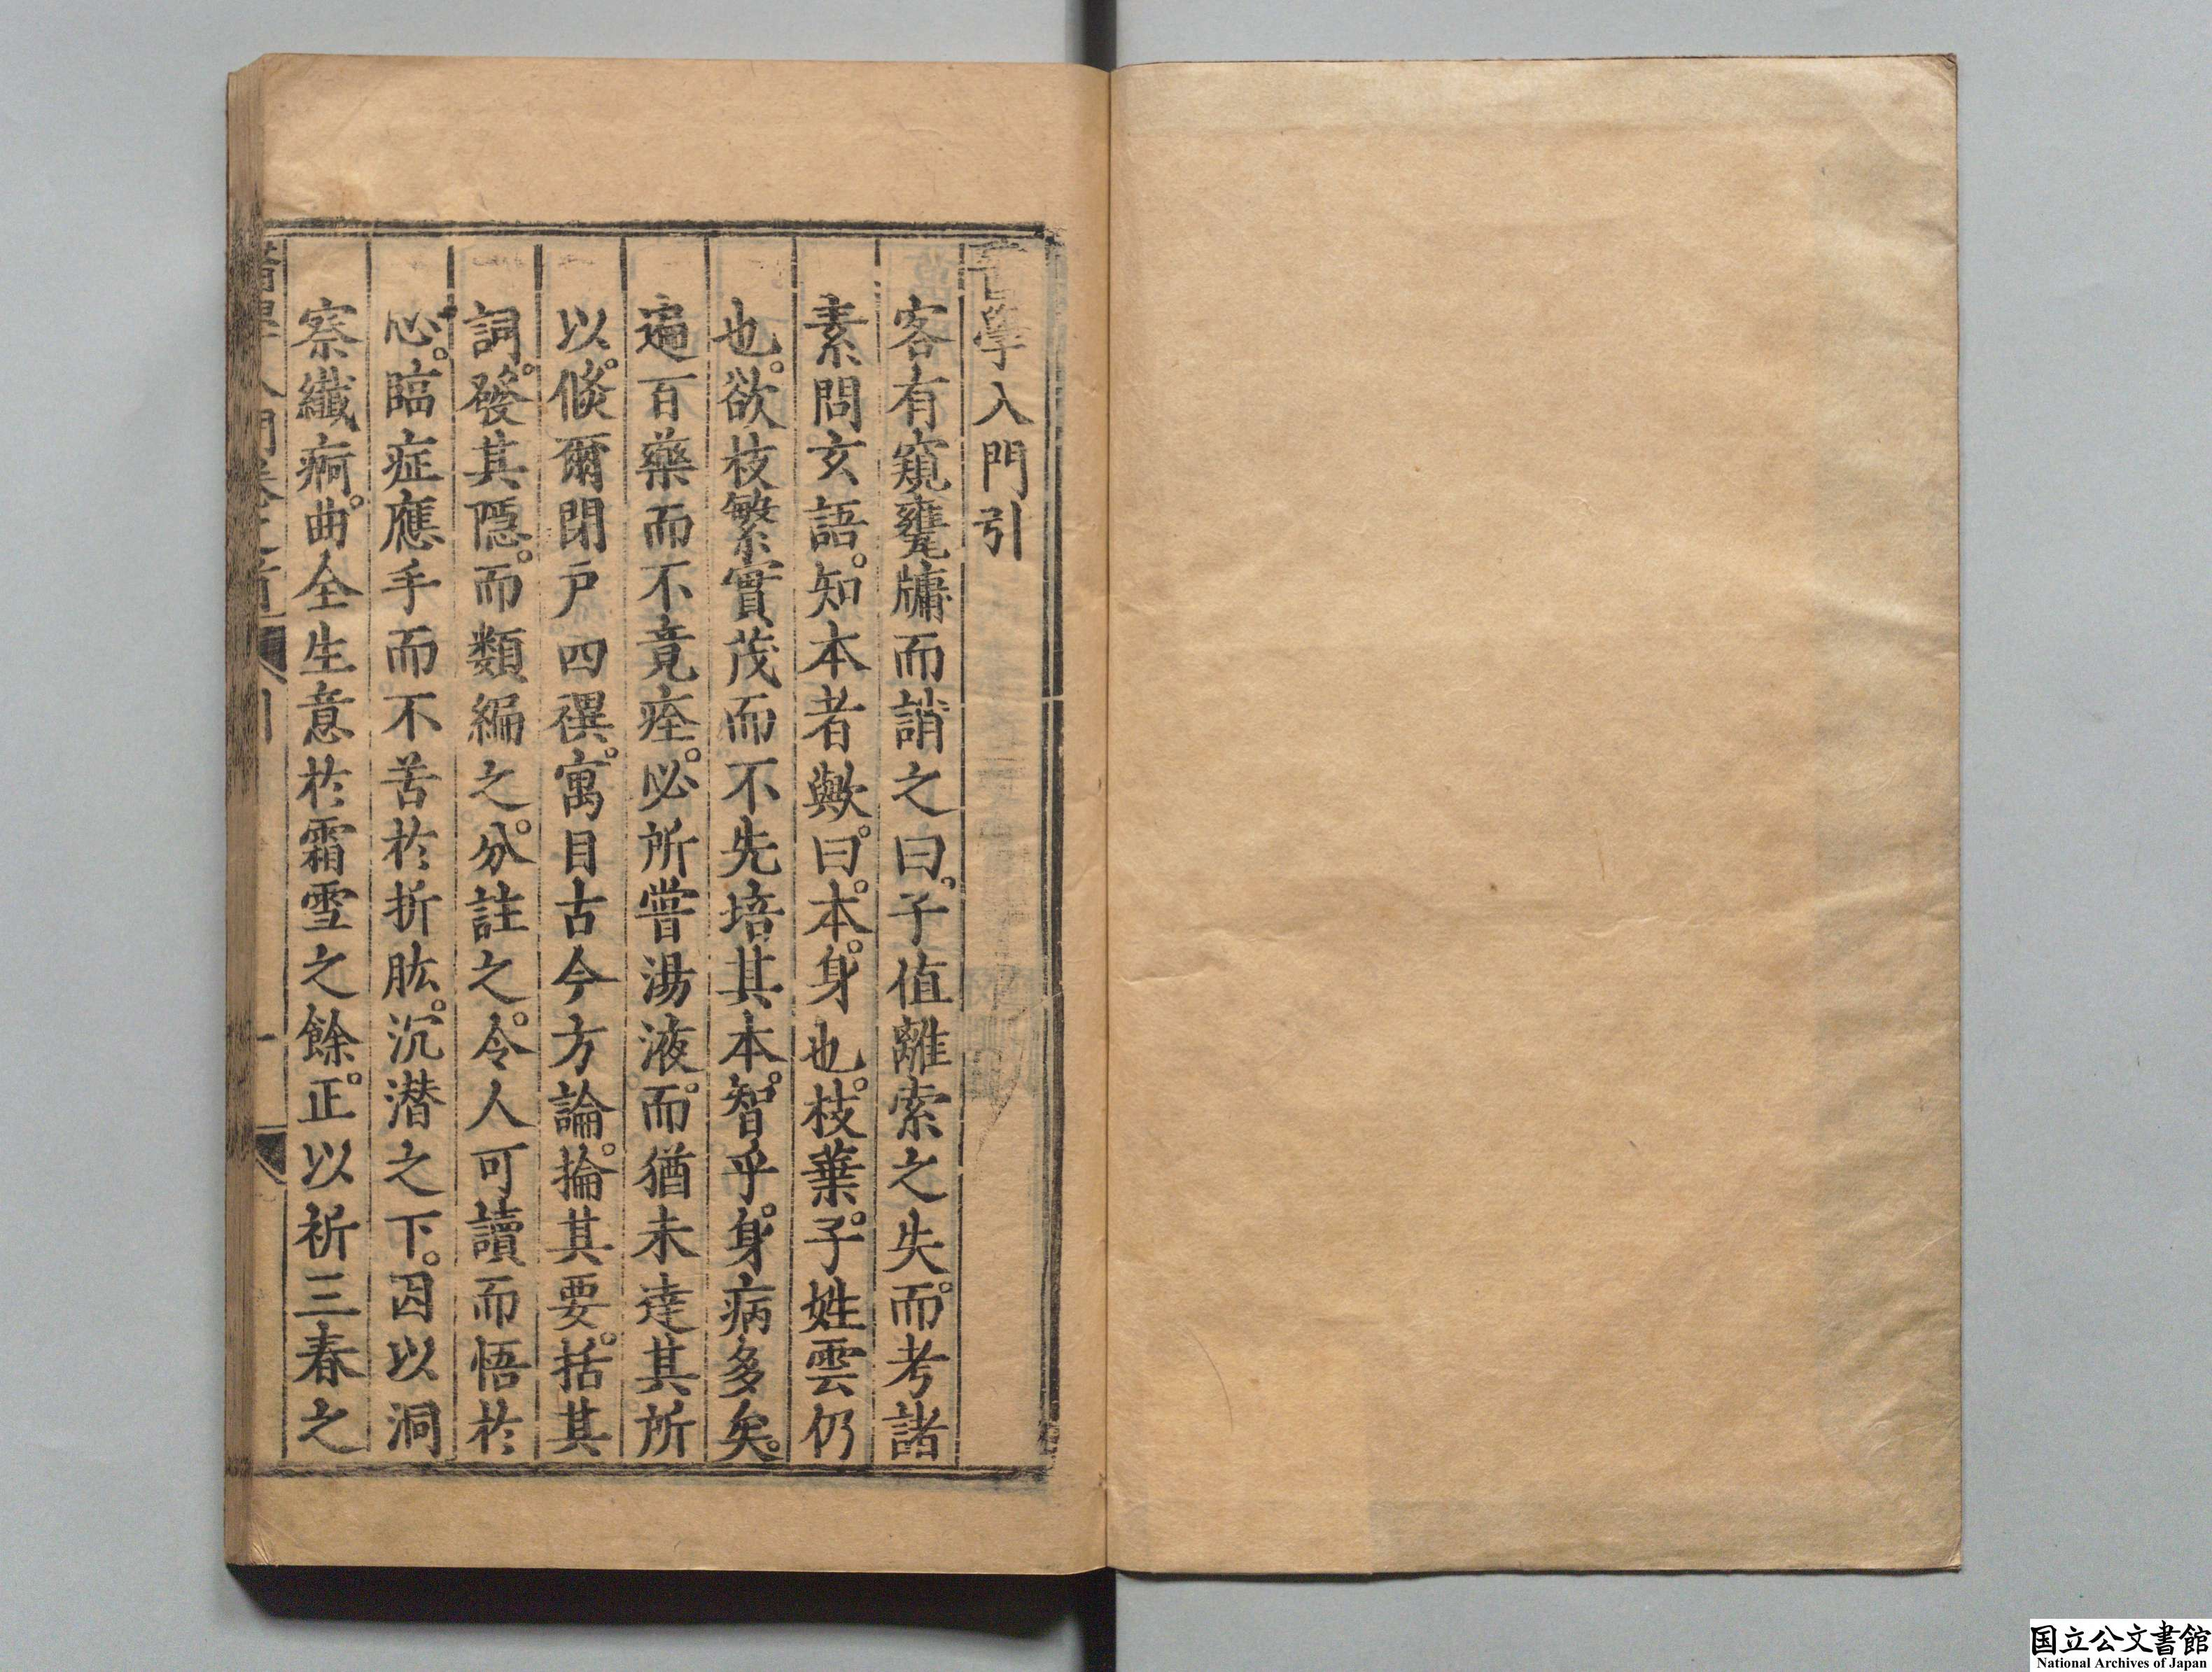 醫學入門引
客有窺甕牖而誚之曰。子值離索之失。而考諸
素問玄語。知本者歟。曰。本。身也。枝葉。子姓雲仍
也。欲枝繁實茂而不先培其本。智乎。身病多矣。
遍百藥而不竟痊。必所嘗湯液。而猶未達其所
以。倐爾閉戶四禩。寓目古今方論。掄其要。括其
詞。發其隱。而類編之。分註之。令人可讀而悟於
心。臨症應手而不苦於折肱。沉潛之下。因以洞
察纖痾。曲全生意於霜雪之餘。正以祈三春之
醫學入門卷之首 引 一
国立公文書館
National Archives of Japan